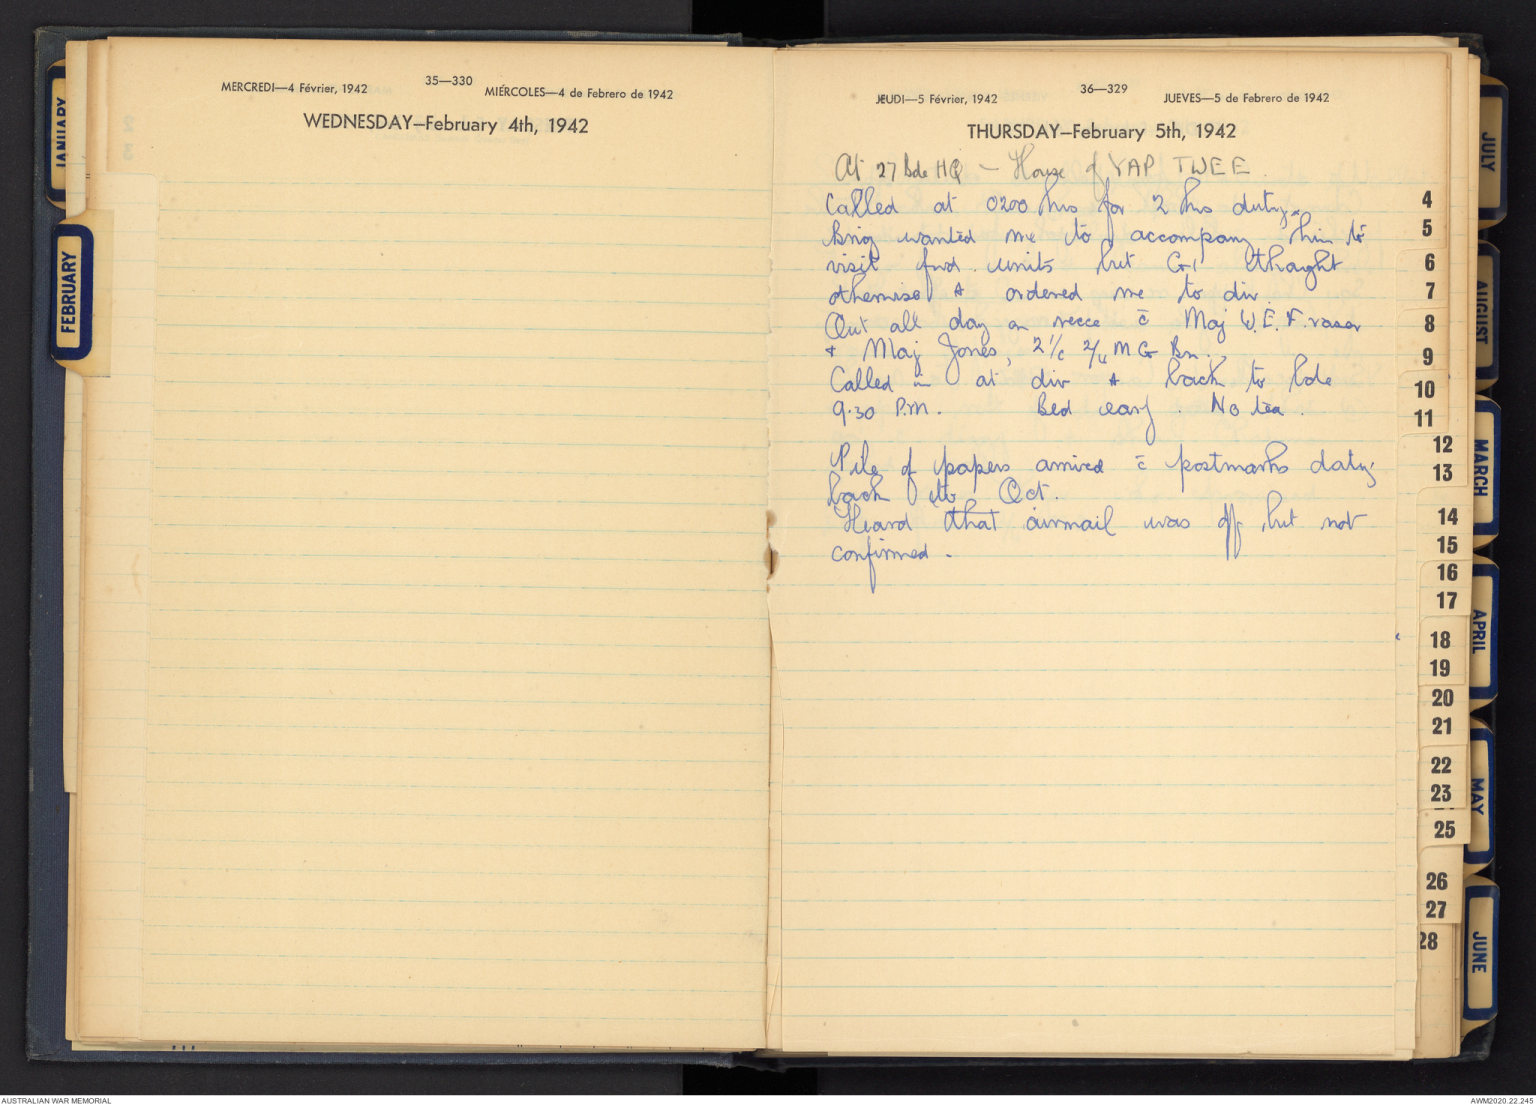 JANUARY
FEBRUARY
35—330
MERCREDI—4 Février, 1942
MIÉRCOLES—4 de Febrero de 1942
WEDNESDAY—February 4th, 1942
36—329
JEUDI—5 Février, 1942
JUEVES—5 de Febrero de 1942
THURSDAY—February 5th, 1942
At 27 Bde HQ — House of YAP TWEE.
Called at 0200 hrs for 2 hrs duty.
Brig wanted me to accompany him to
visit fwd. units but G1 thought
otherwise & ordered me to div.
Out all day on recce c̄ Maj W.E. Fraser
+ Maj Jones, 2 i/c 2/4 M G Bn.
Called in at div & back to bde
9.30 P.M. Bed early. No tea.
Pile of papers arrived c̄ postmarks datg
back to Oct.
Heard that airmail was off, but not
confirmed.
4
5
6
7
8
9
10
11
12
13
14
15
16
17
18
19
20
21
22
23
25
26
27
28
JULY
AUGUST
MARCH
APRIL
MAY
JUNE
AUSTRALIAN WAR MEMORIAL
AWM2020.22.245